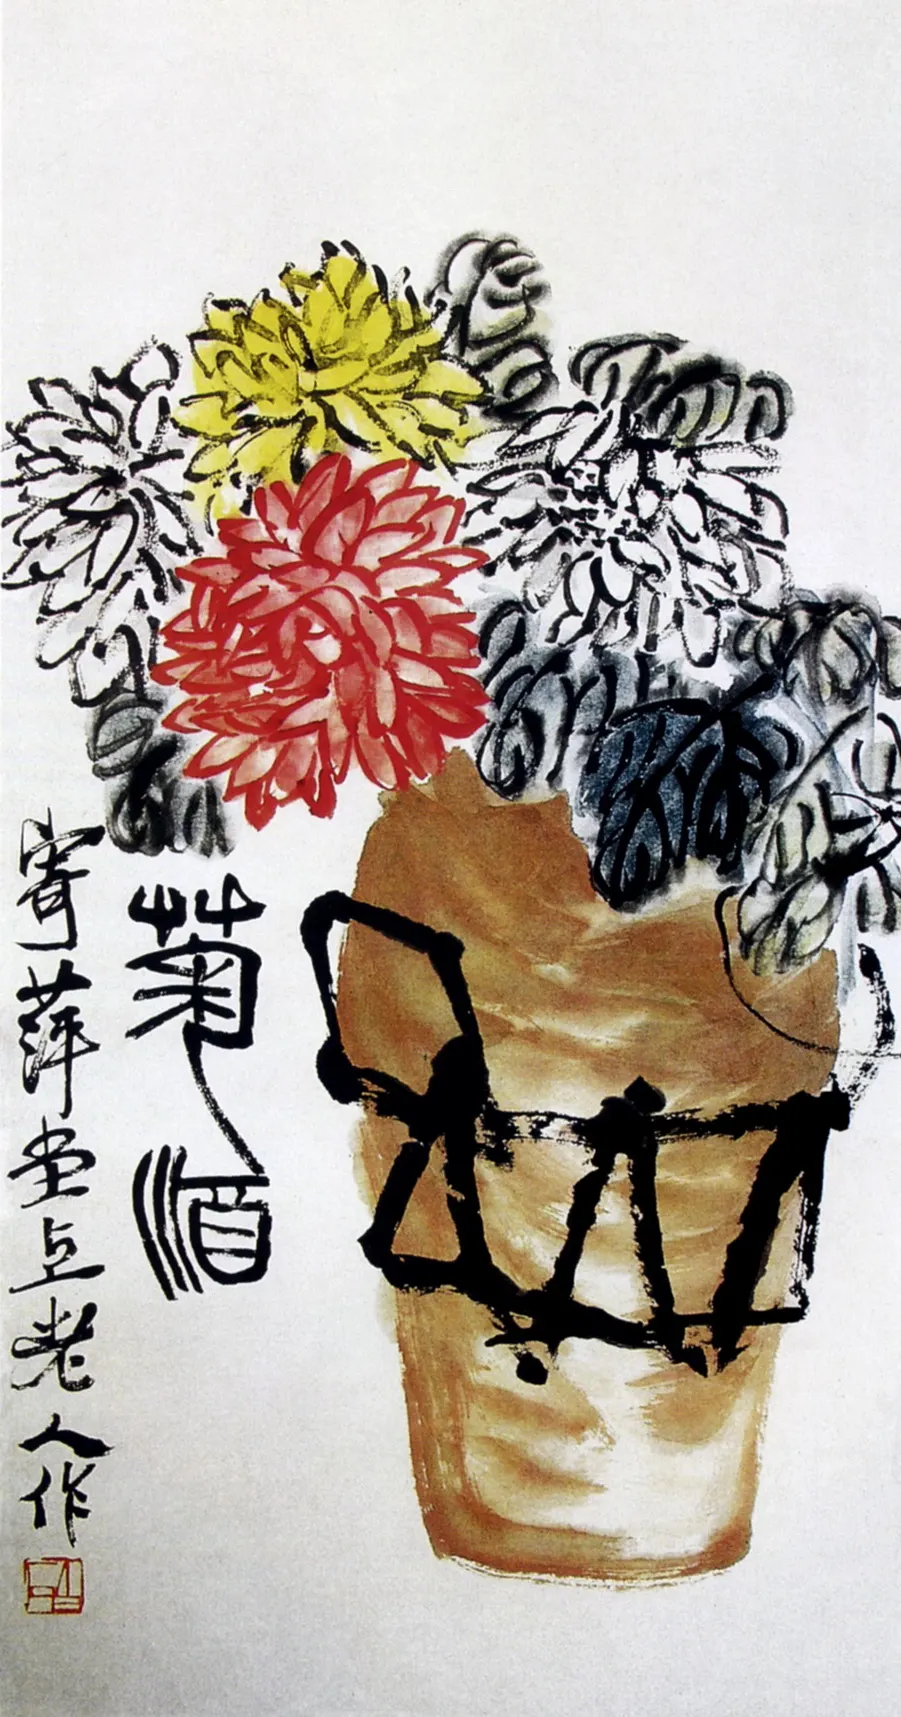 菊酒
寄萍堂上老人作